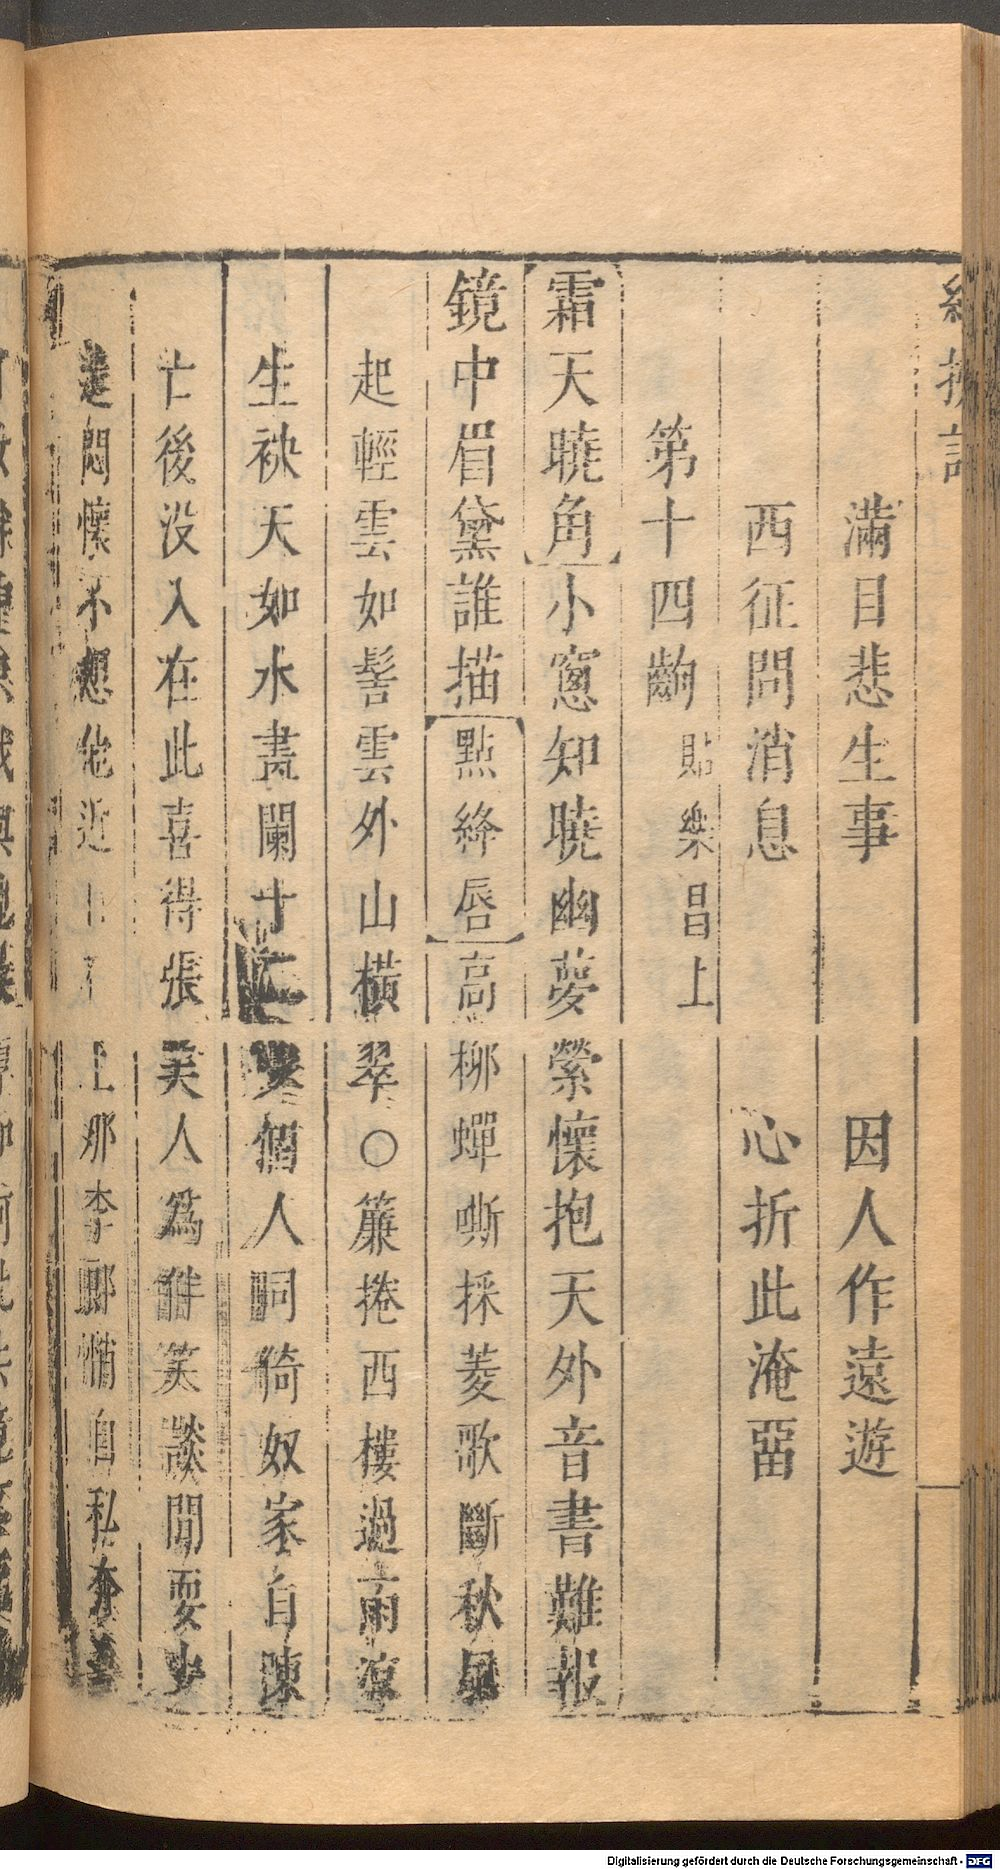 紅拂記
滿目悲生事　因人作遠遊
西征問消息　心折此淹畱
第十四齣　貼樂昌上
霜天曉角　小窻知曉幽夢縈懷抱天外音書難報
鏡中眉黛誰描　點絳唇　高柳蟬嘶採菱歌斷秋風
起輕雲如髻雲外山橫翠○簾捲西樓過雨涼
生袂天如水畫闌十二 個人同倚奴家自陳
亡後没入在此喜得張美人爲伴笑談閒耍少
遣悶懷不想他近日 上那李郎悄自私奔
Digitalisierung gefördert durch die Deutsche Forschungsgemeinschaft - DFG